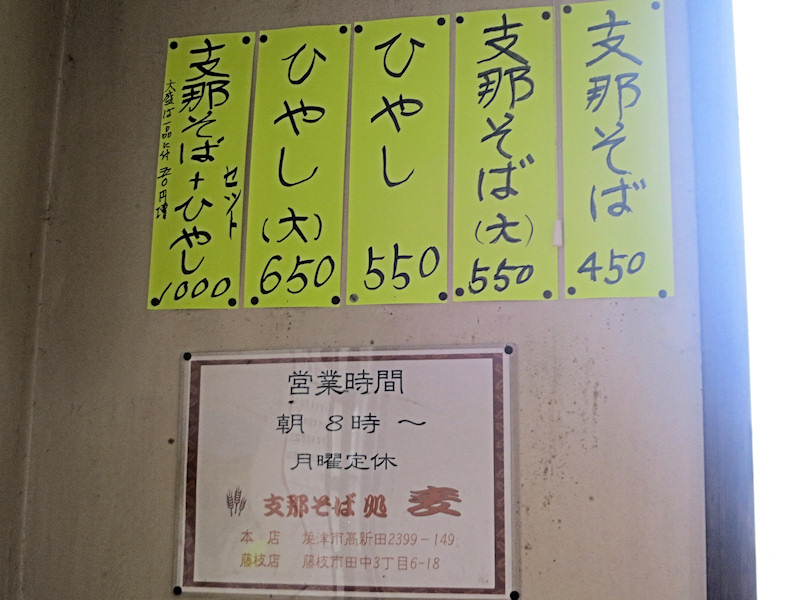 支那そば
450
支那そば(大)
550
ひやし
550
ひやし(大)
650
支那そば+ひやし
セット
1000
大盛は一品に付五〇円増
営業時間
朝 8時 ～
月曜定休
支那そば処 麦
本 店 焼津市高新田2399-149
藤枝店 藤枝市田中3丁目6-18